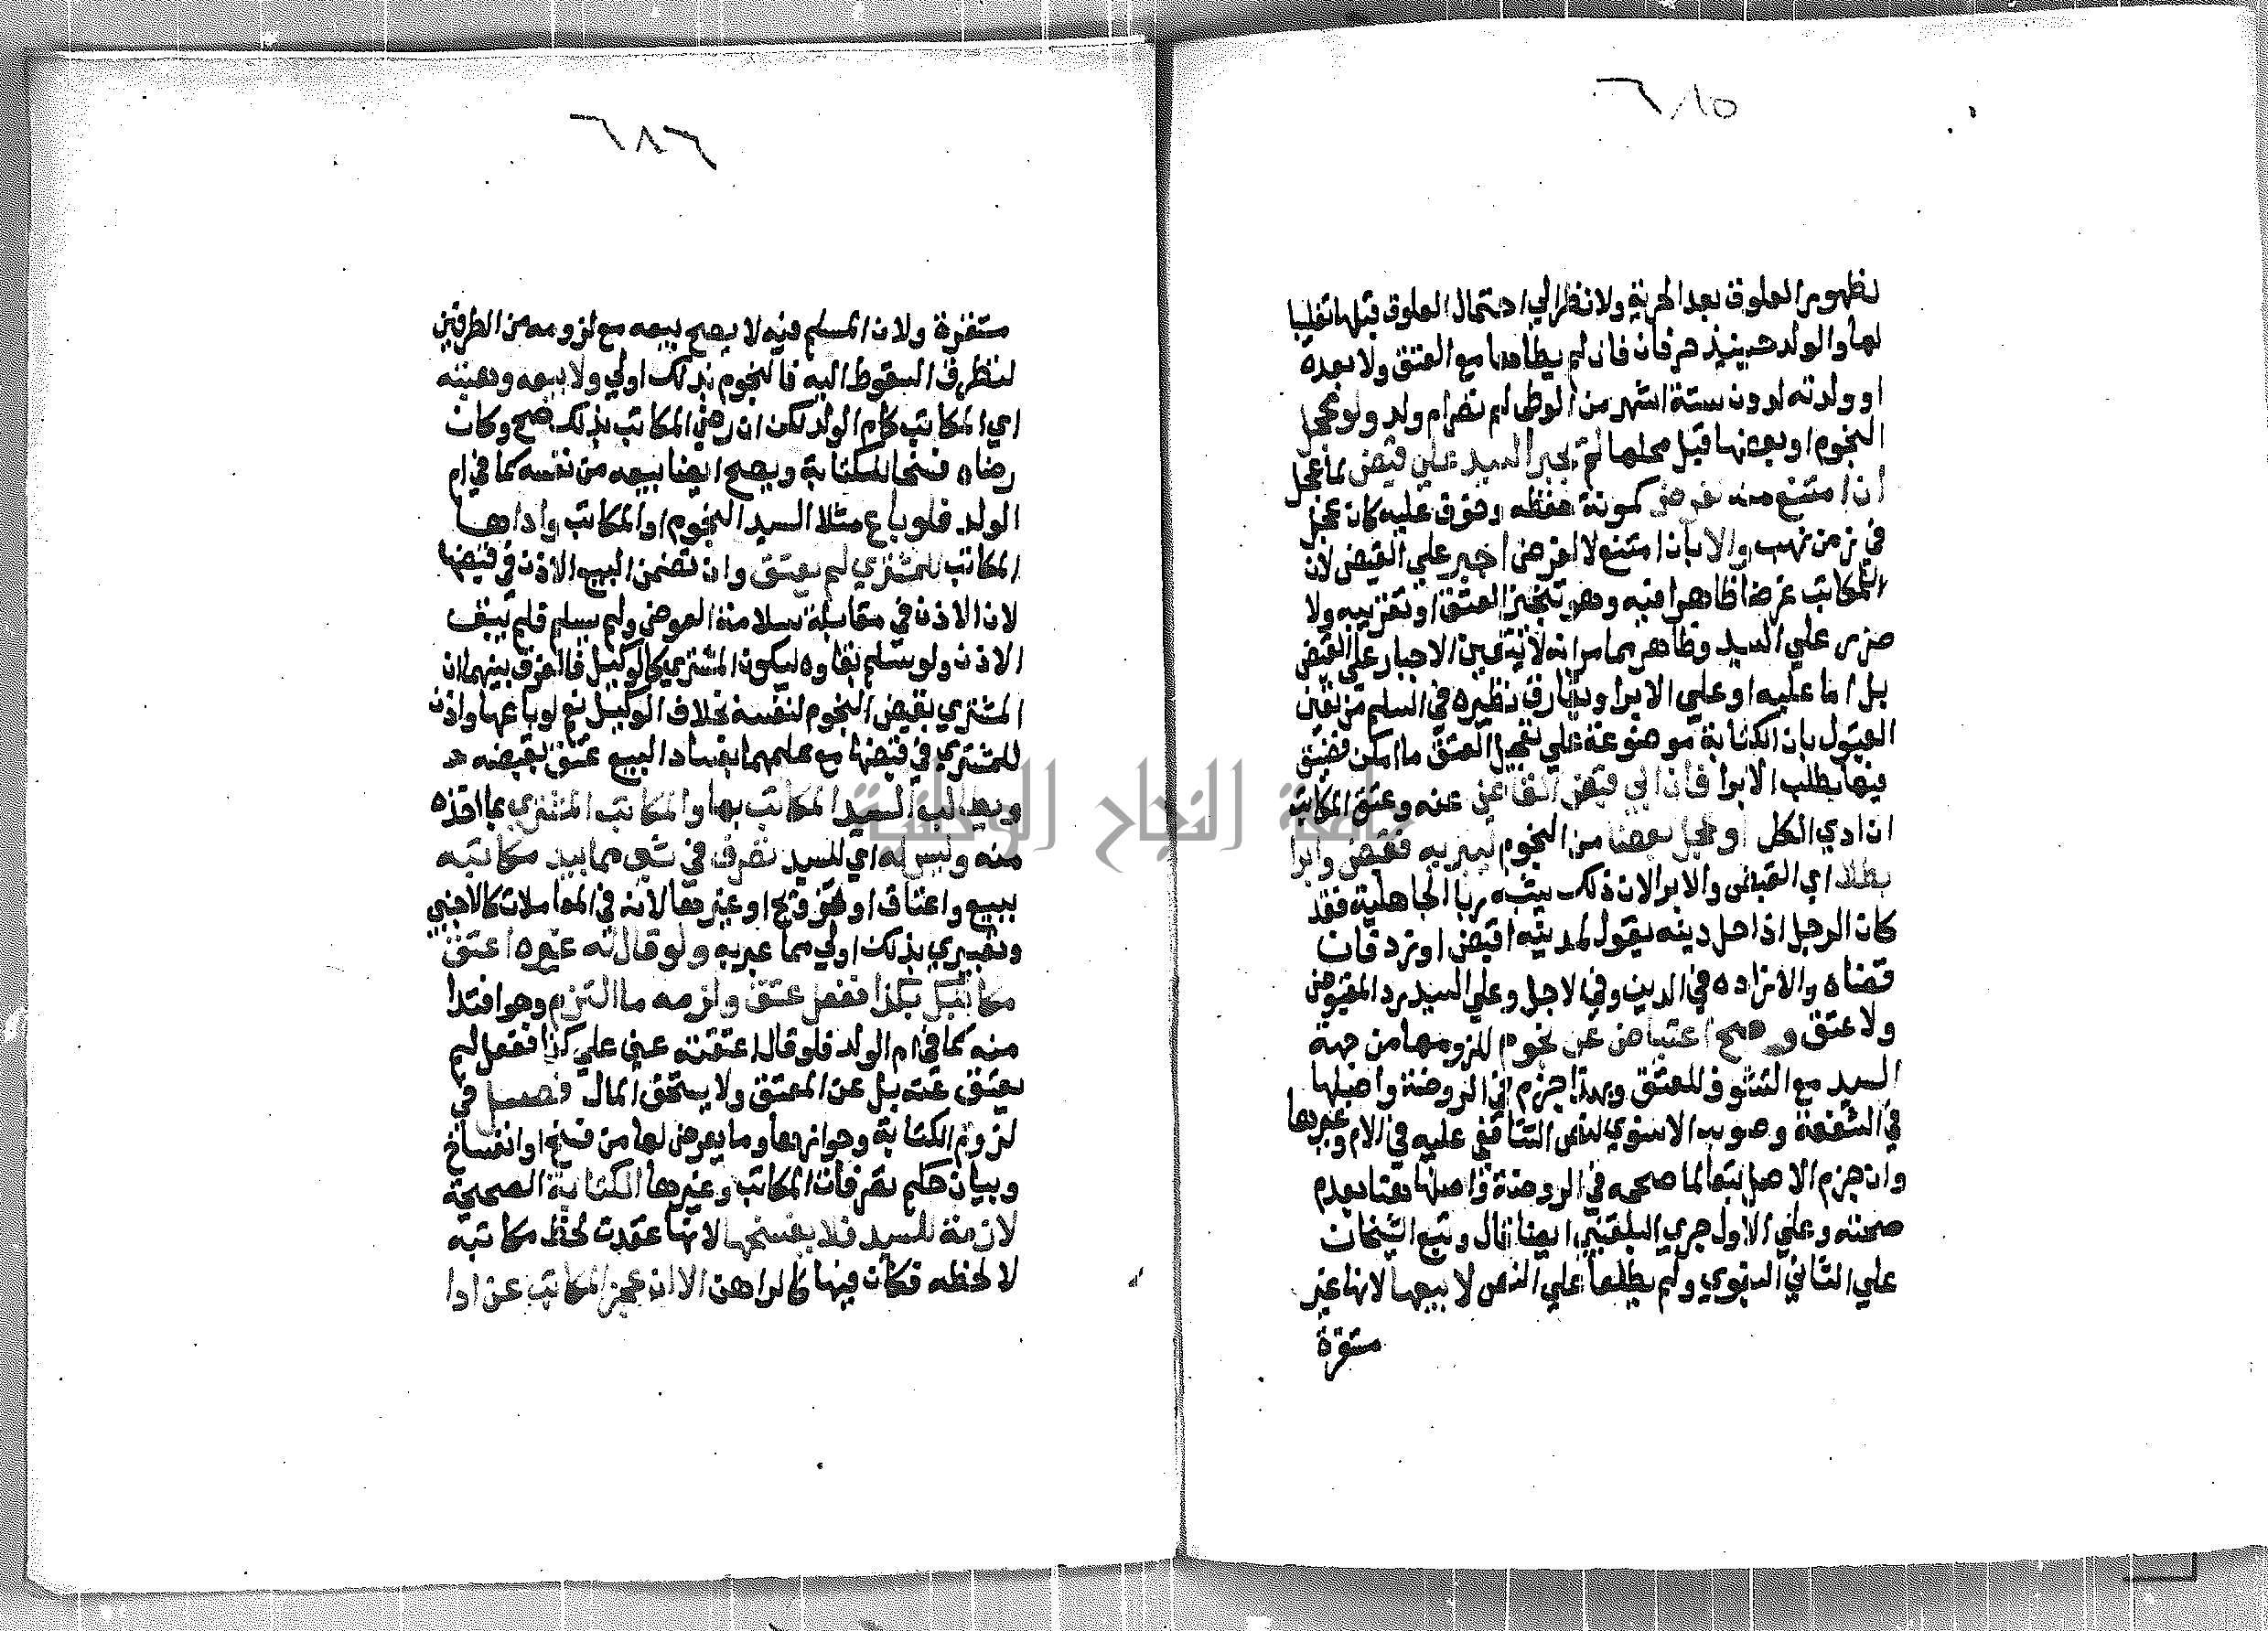 ٦٨٥
لظهور العلوق بعد الحرية ولا نظر الي احتمال العلوق قبلها تغليبا
لها والولد حينيذ حر فان لم يطاها مع العتق ولا بعده
او ولدته لدون ستة اشهر من الوطي لم تصر ام ولد ولو عجل
النجوم او بعضها قبل محلها لم يجبر السيد علي قبض ما عجل
ان امتنع منه لغرض كمونة حفظه وخوف عليه كان عجل
في زمن نهب والا بان امتنع لا لغرض اجبر علي القبض لان
للمكاتب غرضا ظاهرا فيه وهو تنجيز العتق او تقريبه ولا
ضرر علي السيد وظاهر مما مر انه لا يتعين الاجبار علي القبض
بل اما عليه او علي الابرا ويفارق نظيره في السلم من تعين
القبول بان الكتابة موضوعة علي تعجيل العتق ما امكن فضيق
فيها بطلب الابرا فان ابي قبض القاضي عنه وعتق المكاتب
ان ادي الكل او عجل بعضا من النجوم ليبريه فقبض وابرا
بطلا اي القبض والابرا لان ذلك يشبه ربا الجاهلية فقد
كان الرجل اذا حل دينه يقول لمدينه اقض او زد فان
قضاه والا زاده في الدين وفي الاجل وعلي السيد رد المقبوض
ولا عتق وصح اعتياض عن نجوم للزومها من جهة
السيد مع التشوف للعتق وبهذا جزم في الروضة واصلها
في الشفعة وصوبه الاسنوي لنص الشافعي عليه في الام وغيرها
وان جزم الاصل تبعا لما صححه في الروضة واصلها هنا بعدم
صحته وعلي الاول جري البلقيني ايضا قال وتبع الشيخان
علي الثاني البغوي ولم يطلعا علي النص لا بيعها لانها غير
مستقرة
٦٨٦
مستقرة ولان المسلم فيه لا يصح بيعه مع لزومه من الطرفين
لتطرق السقوط اليه فالنجوم بذلك اولي ولا بيعه وهبته
اي المكاتب كام الولد لكن ان رضي المكاتب بذلك صح وكان
رضاه فسخا للكتابة ويصح ايضا بيعه من نفسه كما في ام
الولد فلو باع مثلا السيد النجوم او المكاتب واداها
المكاتب للمشتري لم يعتق وان تضمن البيع الاذن في قبضها
لان الاذن في مقابلة سلامة العوض ولم يسلم فلم يبق
الاذن ولو سلم بقاوه ليكون المشتري كالوكيل فالفرق بينهما ان
المشتري يقبض النجوم لنفسه بخلاف الوكيل نعم لو باعها واذن
للمشتري في قبضها مع علمهما بفساد البيع عتق بقبضه
ويطالب السيد المكاتب بها والمكاتب المشتري بما اخذه
منه وليس له اي للسيد تصرف في شي مما بيد مكاتبه
ببيع واعتاق او تزويج او غيرها لانه في المعاملات كالاجنبي
وتعبيري بذلك اولي مما عبر به ولو قال له غيره اعتق
مكاتبك بكذا ففعل عتق ولزمه ما التزم وهو افتدا
منه كما في ام الولد فلو قال اعتقته عني علي كذا ففعل لم
يعتق عنه بل عن المعتق ولا يستحق المال فصل في
لزوم الكتابة وجوازها وما يعرض لها من فسخ او انفساخ
وبيان حكم تصرفات المكاتب وغيرها الكتابة الصحيحة
لازمة للسيد فلا يفسخها لانها عقدت لحظ مكاتبه
لا لحظه فكان فيها كالراهن الا ان عجز المكاتب عن ادا
جامعة النجاح الوطنية